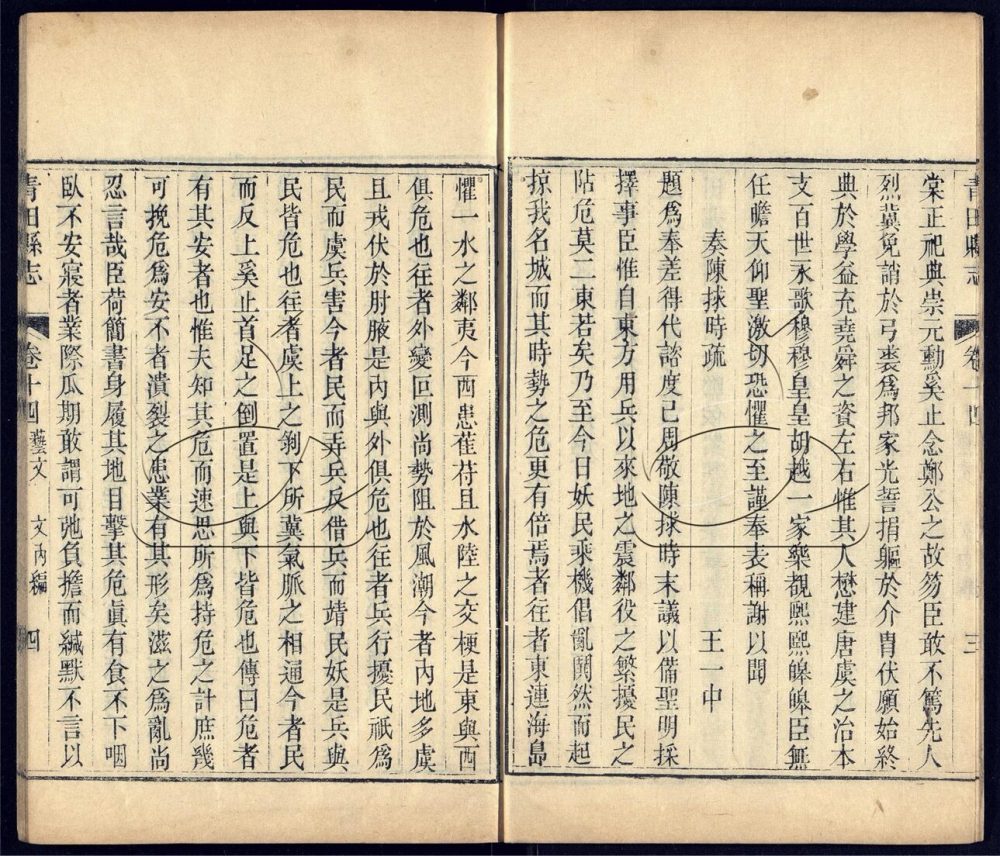 青田縣志
卷十四
三
棠正祀典崇元勳奚止念鄭公之故笏臣敢不篤先人
烈冀免誚於弓裘爲邦家光誓捐軀於介冑伏願始終
典於學益充堯舜之資左右惟其人懋建唐虞之治本
支百世永歌穆穆皇皇胡越一家樂覩熙熙皞皞臣無
任瞻天仰聖激切恐懼之至謹奉表稱謝以聞
奏陳捄時疏
王一中
題爲奉差得代諮度已周敬陳捄時末議以備聖明採
擇事臣惟自東方用兵以來地之震鄰役之繁擾民之
阽危莫二東若矣乃至今日妖民乘機倡亂鬨然而起
掠我名城而其時勢之危更有倍焉者往者東連海島
懼一水之鄰夷今西患萑苻且水陸之交梗是東與西
俱危也往者外變叵測尚勢阻於風潮今者內地多虞
且戎伏於肘腋是內與外俱危也往者兵行擾民祇爲
民而虞兵害今者民而弄兵反借兵而靖民妖是兵與
民皆危也往者虞上之剝下所冀氣脈之相通今者民
而反上奚止首足之倒置是上與下皆危也傳曰危者
有其安者也惟夫知其危而速思所爲持危之計庶幾
可挽危爲安不者潰裂之患業有其形矣滋之爲亂尚
忍言哉臣荷簡書身履其地目擊其危眞有食不下咽
臥不安寢者業際瓜期敢謂可弛負擔而緘默不言以
青田縣志
卷十四
藝文
文內編
四